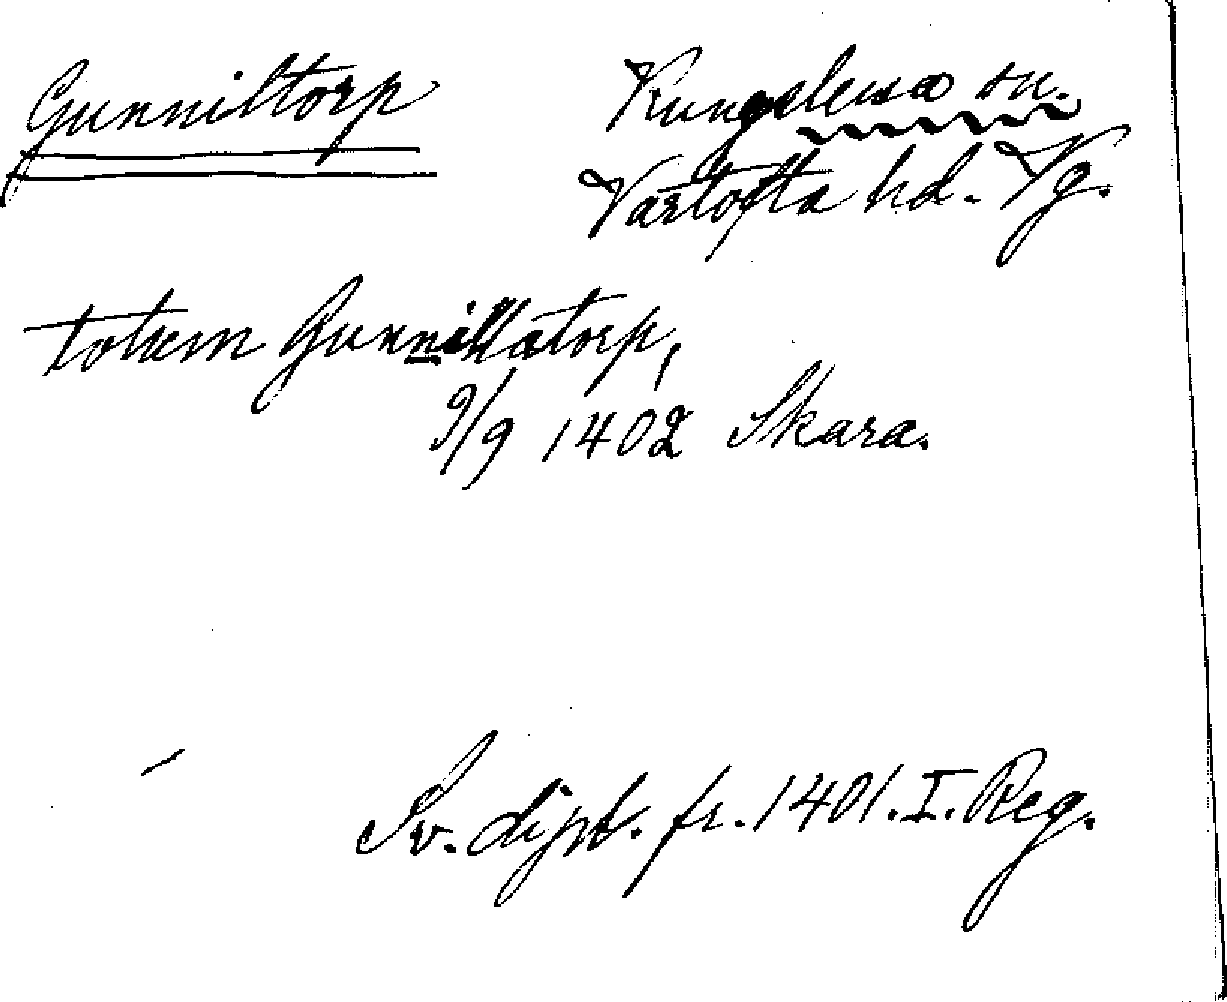 Gunniltorp
Kungslena sn.
Vartofta hd. Vg.
totum Gunnillatorp,
9/9 1402 Skara.
Sv. dipl. fr. 1401. I. Reg.